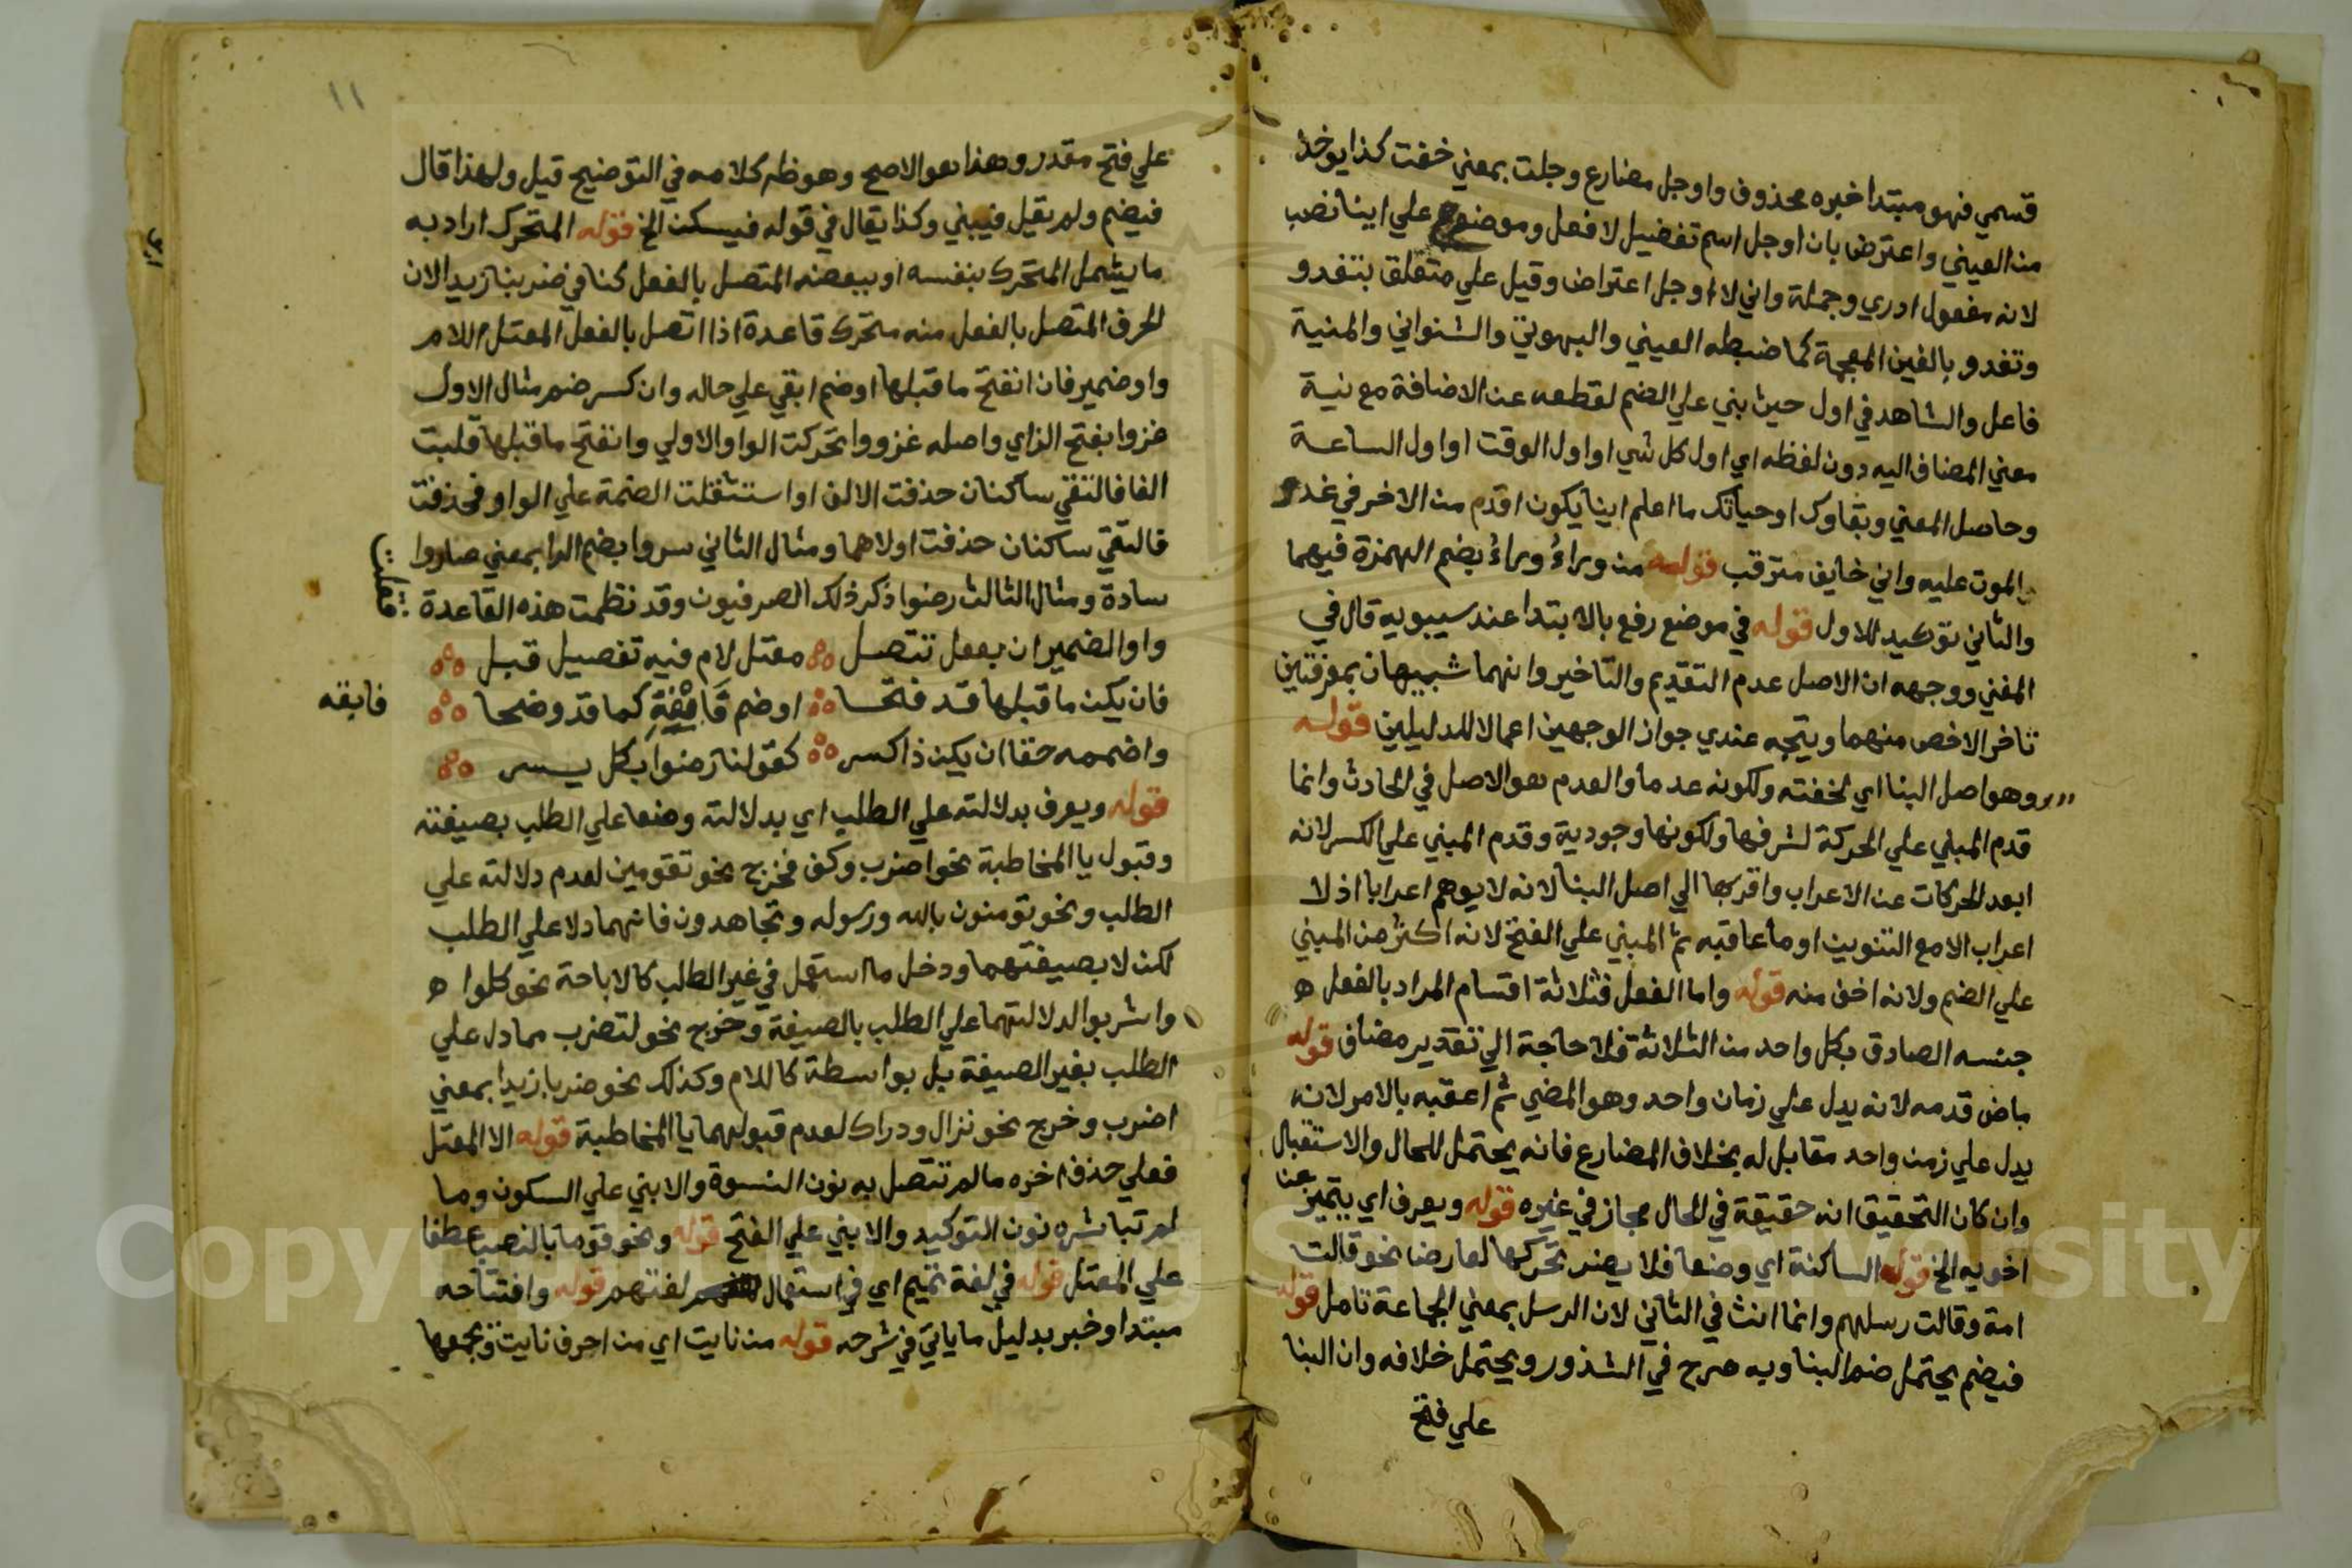 قسمي فهو مبتدا خبره محذوف واوجل مضارع وجلت بمعني خفت كذا يوخذ
من العيني واعترض بان اوجل اسم تفضيل لا فعل وموضوع علي اينا نصب
لانه مفعول ادري وجملة واني لا اوجل اعتراض وقيل علي متعلق بتغدو
وتغدو بالغين المعجمة كما ضبطه العيني والبهوتي والشنواني والمنية
فاعل والشاهد في اول حيث بني علي الضم لقطعه عن الاضافة مع نية
معني المضاف اليه دون لفظه اي اول كل شي او اول الوقت او اول الساعة
وحاصل المعني وبقاوك او حياتك ما اعلم اينا يكون اقدم من الاخر في غدو
الموت عليه واني خايف مترقب قوله من وراءُ وراءُ بضم الهمزة فيهما
والثاني توكيد للاول قوله في موضع رفع بالابتدا عند سيبويه قال في
المغني ووجهه ان الاصل عدم التقديم والتاخير وانهما شبيهان بمعرفتين
تاخر الاخص منهما ويتجه عندي جواز الوجهين اعمالا للدليلين قوله
وهو اصل البنا اي لخفته ولكونه عدما والعدم هو الاصل في الحادث وانما
قدم المبني علي الحركة لشرفها ولكونها وجودية وقدم المبني علي الكسر لانه
ابعد الحركات عن الاعراب واقربها الي اصل البنا لانه لا يوهم اعرابا اذ لا
اعراب الا مع التنوين او ما عاقبه ثم المبني علي الفتح لانه اكثر من المبني
علي الضم ولانه اخف منه قوله واما الفعل فثلاثة اقسام المراد بالفعل ه
جنسه الصادق بكل واحد من الثلاثة فلا حاجة الي تقدير مضاف قوله
ماض قدمه لانه يدل علي زمان واحد وهو المضي ثم اعقبه بالامر لانه
يدل علي زمن واحد مقابل له بخلاف المضارع فانه يحتمل للحال والاستقبال
وان كان التحقيق انه حقيقة في الحال مجاز في غيره قوله ويعرف اي يتميز عن
اخويه الخ قوله الساكنة اي وضعا فلا يضر تحركها لعارض نحو قالت
امة وقالت رسلهم وانما انث في الثاني لان الرسل بمعني الجماعة تامل قوله
فيضم يحتمل ضم البنا وبه صرح في الشذور ويحتمل خلافه وان البنا
علي فتح
١١
علي فتح مقدر وهذا هو الاصح وهو ظه كلامه في التوضيح قيل ولهذا قال
فيضم ولم يقل فيبني وكذا يقال في قوله فيسكن الخ قوله المتحرك اراد به
ما يشمل المتحرك بنفسه او ببعضه المتصل بالفعل كنا في ضربنا زيدا لان
الحرف المتصل بالفعل منه متحرك قاعدة اذا اتصل بالفعل المعتل اللام
واو ضمير فان انفتح ما قبلها او ضم ابقي علي حاله وان كسر ضم مثال الاول
غزوا بفتح الزاي واصله غزووا تحركت الواو الاولي وانفتح ما قبلها قلبت
الفا فالتقي ساكنان حذفت الالف او استثقلت الضمة علي الواو فحذفت
فالتقي ساكنان حذفت اولاهما ومثال الثاني سروا بضم الرا بمعني صاروا
سادة ومثال الثالث رضوا ذكر ذلك الصرفيون وقد نظمت هذه القاعدة
فقلت
واو الضمير ان بفعل تتصل معتل لام فيه تفصيل قبل
فان يكن ما قبلها قد فتحا او ضم فابقه كما قد وضحا
فابقه
واضممه حقا ان يكن ذا كسر كقولنا رضوا بكل يسر
قوله ويعرف بدلالته علي الطلب اي بدلالته وضعا علي الطلب بصيغته
وقبول يا المخاطبة نحو اضرب وكف فخرج نحو تقومين لعدم دلالته علي
الطلب ونحو تومنون بالله ورسوله وتجاهدون فانهما دلا علي الطلب
لكن لا بصيغتهما ودخل ما استعمل في غير الطلب كالاباحة نحو كلوا ه
واشربوا لدلالتهما علي الطلب بالصيغة وخرج نحو لتضرب مما دل علي
الطلب بغير الصيغة بل بواسطة كاللام وكذلك نحو ضربا زيدا بمعني
اضرب وخرج نحو نزال ودراك لعدم قبولهما يا المخاطبة قوله الا المعتل
فعلي حذف اخره ما لم تتصل به نون النسوة والا بني علي السكون وما
لم تباشره نون التوكيد والا بني علي الفتح قوله ونحو قوما بالنصب عطفا
علي المعتل قوله في لغة تميم اي في استعمال لغتهم قوله وافتتاحه
مبتدا وخبر بدليل ما ياتي في شرحه قوله من نايت اي من احرف نايت وبجمعها
Copyright © King Saud University